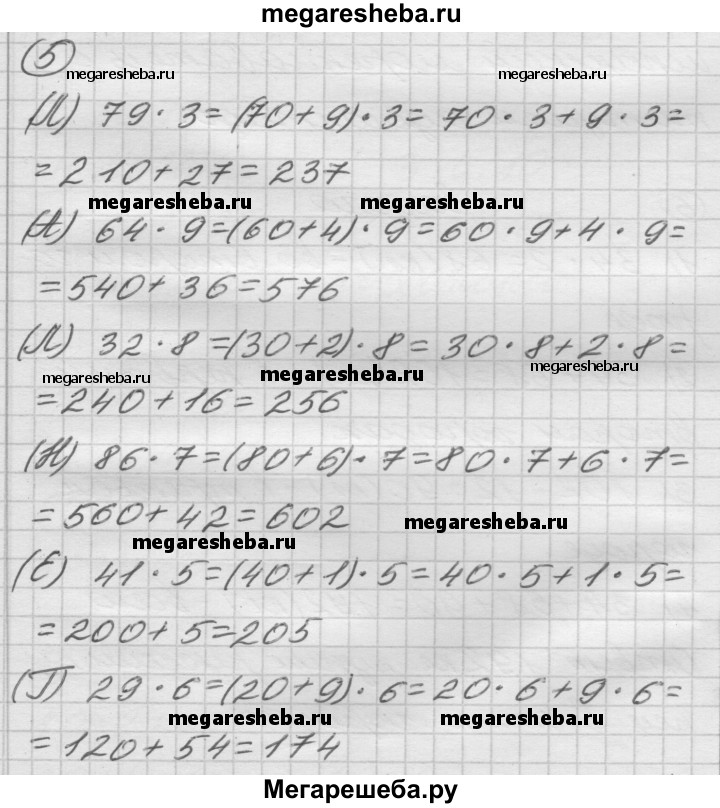 megaresheba.ru
5
megaresheba.ru megaresheba.ru
(Л) 79 · 3 = (70 + 9) · 3 = 70 · 3 + 9 · 3 =
= 210 + 27 = 237
megaresheba.ru megaresheba.ru
(А) 64 · 9 = (60 + 4) · 9 = 60 · 9 + 4 · 9 =
= 540 + 36 = 576
(Л) 32 · 8 = (30 + 2) · 8 = 30 · 8 + 2 · 8 =
megaresheba.ru megaresheba.ru megaresheba.ru
= 240 + 16 = 256
(Н) 86 · 7 = (80 + 6) · 7 = 80 · 7 + 6 · 7 =
= 560 + 42 = 602
megaresheba.ru
megaresheba.ru
(Е) 41 · 5 = (40 + 1) · 5 = 40 · 5 + 1 · 5 =
= 200 + 5 = 205
(П) 29 · 6 = (20 + 9) · 6 = 20 · 6 + 9 · 6 =
megaresheba.ru megaresheba.ru
= 120 + 54 = 174
Мегарешеба.ру